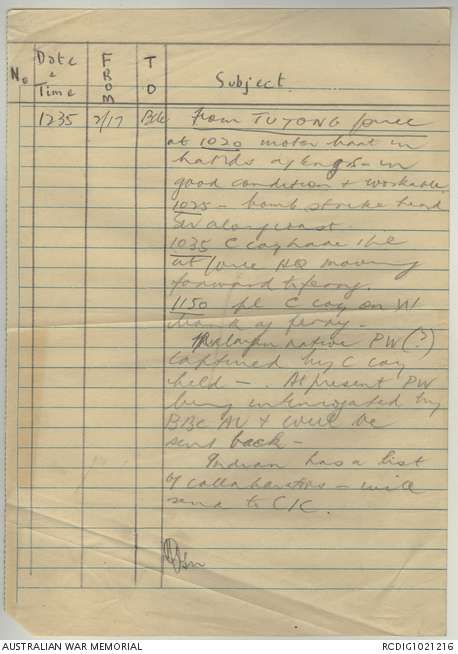 No. Date & Time FROM TO Subject
1235 2/17 Bde From TUTONG force
at 1020 motor boat in
hands of Engrs - in
good condition & workable
1025 - bomb strike head
SW along coast
1035 C coy have
at force HQ moving
forward to ferry.
1150 pl C coy on W
bank of ferry -
Malayan native PW (?)
captured by C coy
held - . At present PW
being interrogated by
& will be
sent back -
Indian has a list
of collaborators - will
send to C/C.
AUSTRALIAN WAR MEMORIAL
RCDIG1021216